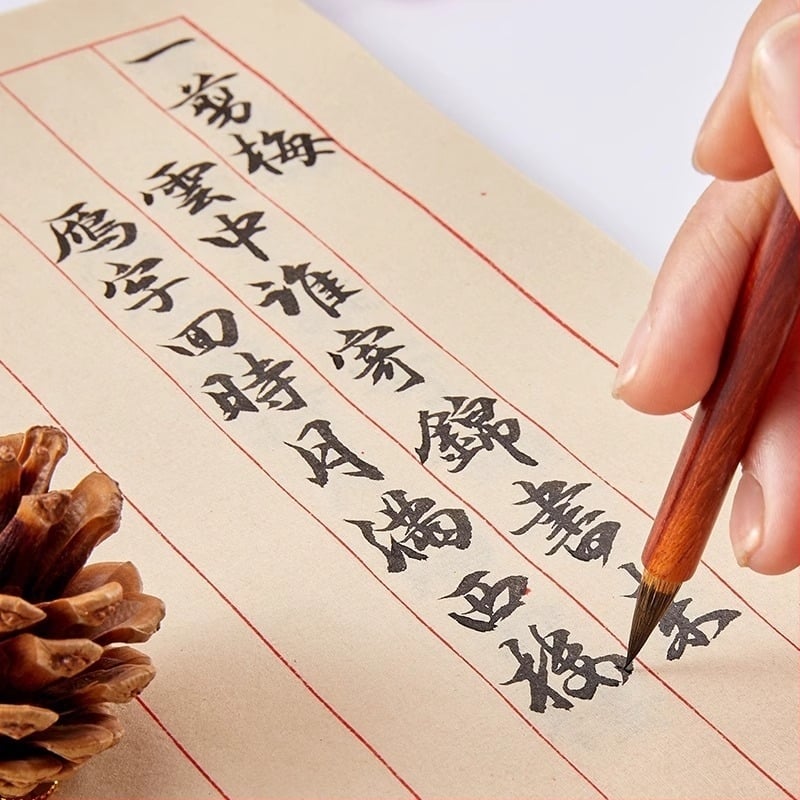 一剪梅
雲中誰寄錦書来
鴈字回時月滿西樓